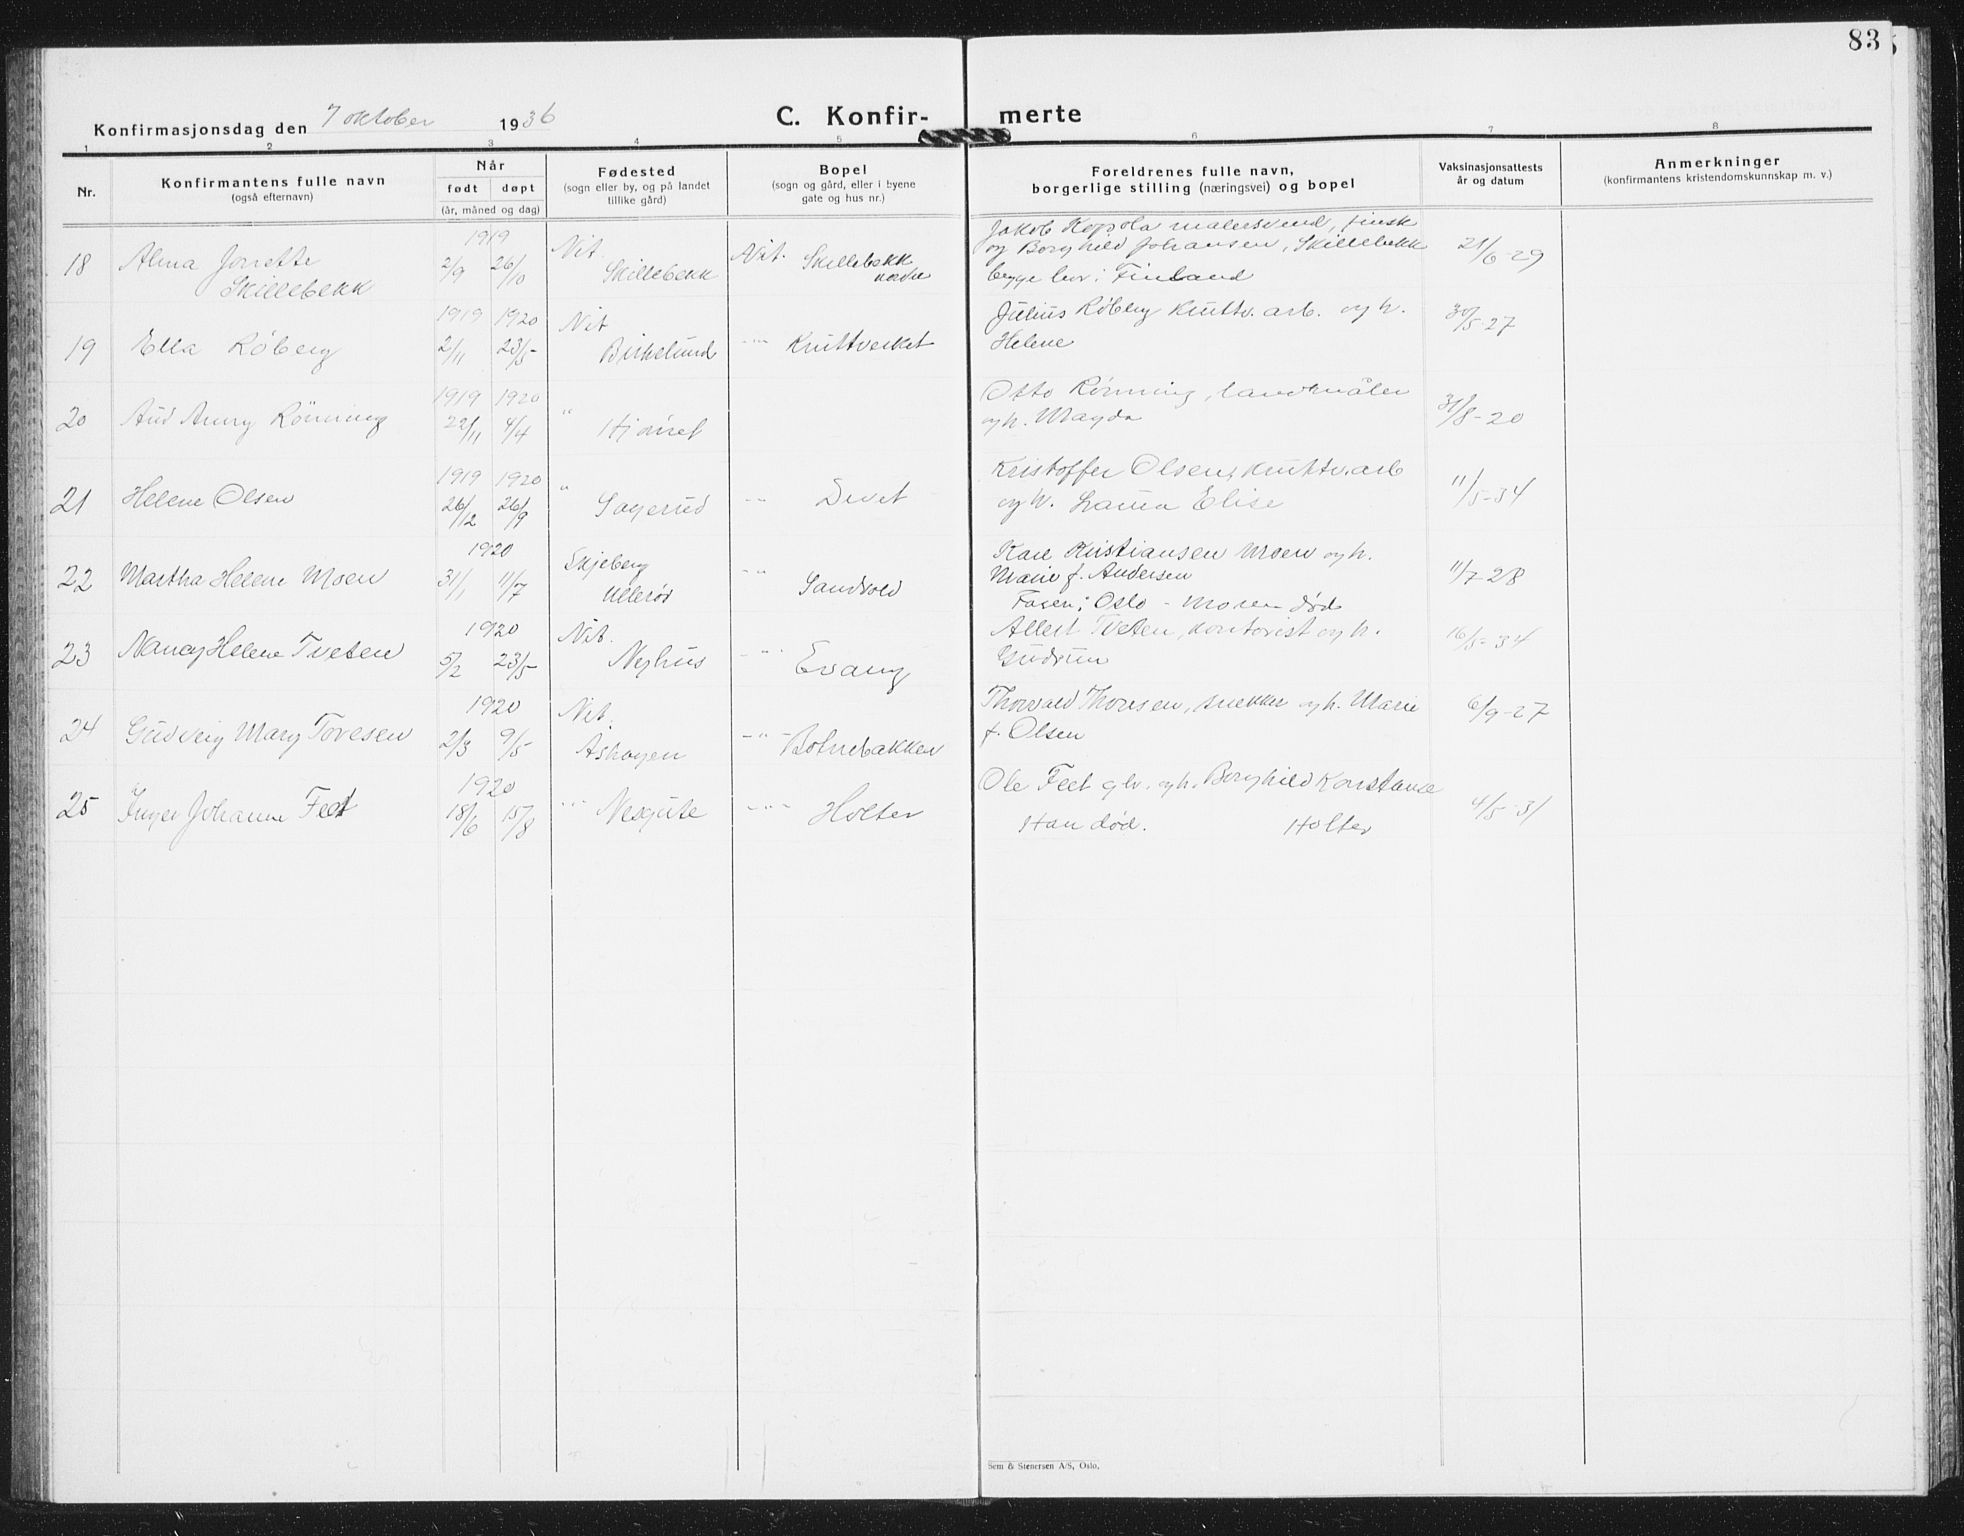 83
Konfirmasjonsdag den 7 oktober 1936 C. Konfir- merte
1 2 3 4 5 6 7 8
Nr. Konfirmantens fulle navn (også efternavn) Når født døpt (år, måned og dag) Fødested (sogn eller by, og på landet tillike gård) Bopel (sogn og gård, eller i byene gate og hus nr.) Foreldrenes fulle navn, borgerlige stilling (næringsvei) og bopel Vaksinasjonsattests år og datum Anmerkninger (konfirmantens kristendomskunnskap m. v.)
1919 Nit. Nit. Skillebekk Jakob Koppola malersvend, finsk
18 Alma Jonette 2/9 26/10 Skillebekk nedre og Borghild Johansen, Skillebekk 21/6-29
Skillebekk begge bor i Finland
1919 1920 Nit Julius Röberg Kruttv. arb. og h.
19 Ella Röberg 2/11 23/5 Birkelund -"- Kruttverket Helene 30/5-27
1919 1920 " Otto Rönning, landmåler
20 Aud Anny Rönning 22/11 4/4 og h. Magda 31/8-20
1919 1920 " Kristoffer Olsen, Kruttv.arb
21 Helene Olsen 26/12 26/9 Sagerud -"- og h. Laura Elise 11/5-34
1920 Skjeberg Kristiansen Moen og h.
22 Martha Helene Moen 31/1 11/7 Ullerød -"- Sandvold Marie f. Andersen 11/7-28
Faren i Oslo - moren död
1920 Nit. Tveten, kontorist og h.
23 Nancy Helene Tveten 5/2 23/5 Nyhus -"- Evang Gudrun 16/5-34
1920 Nit. Thorvald snekker og h. Marie
24 Gudveig Mary Toresen 2/3 9/5 Åshagen -"- Botnebakken f. Olsen 6/9-27
1920 Ole Feet og h. Borghild Konstanse
25 Inger Johanne Feet 18/6 15/8 -"- -"- Holter Han död. Holter 4/5-31
Sem & Stenersen A/S, Oslo.